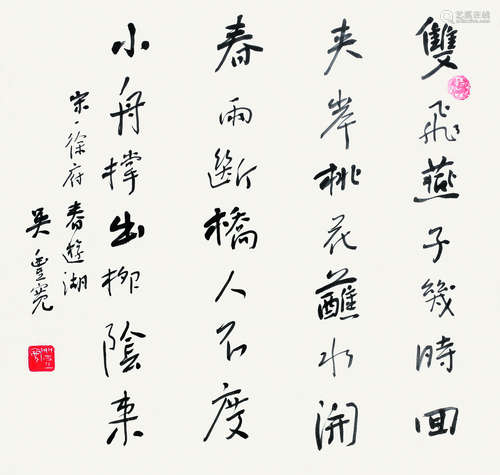 雙飛燕子幾時回
夾岸桃花蘸水開
春雨斷橋人不度
小舟撑出柳陰来
宋、徐府春遊湖
吴豊
艺狐在线